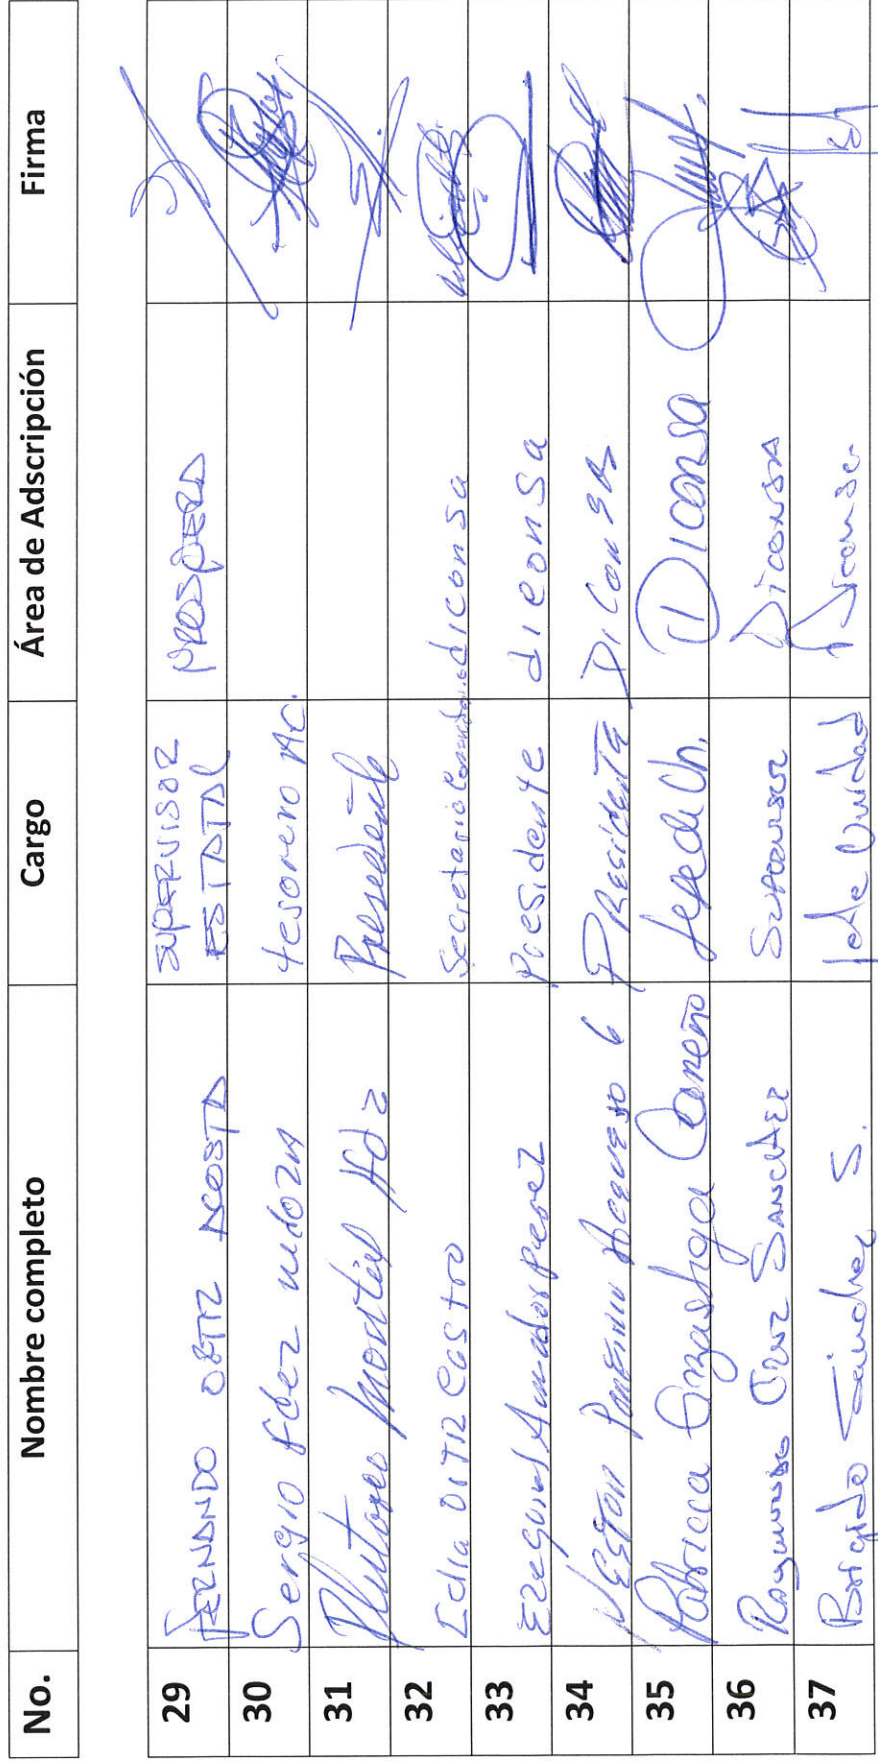 No. Nombre completo Cargo Área de Adscripción Firma
29 FERNANDO ORTIZ ACOSTA SUPERVISOR ESTATAL PROSPERA
30 Sergio fdez tesorero AC.
31 Plutarco Montiel Hdz Presedente
32 Edia Ortiz Castro Secretario diconsa
33 Ezequiel Amador Perez Presidente diconsa
34 NESTOR PRESIDENTE DICONSA
35 Patricia Carreño Jefe de Un. Diconsa
36 Raymundo Cruz Sanchez Supervisor Diconsa
37 Brigido Sánchez S. Jefe de Unidad Diconsa